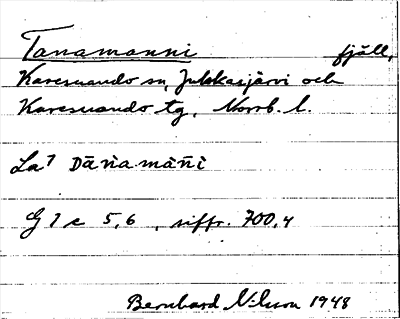 Tanamanni fjäll,
Karesuando sn, Jukkasjärvi och
Karesuando tg, Norrb. l.
La⁷ Dānamāni
G 1 c 5,6 , siffr. 700,4
Bernhard Nilsson 1948